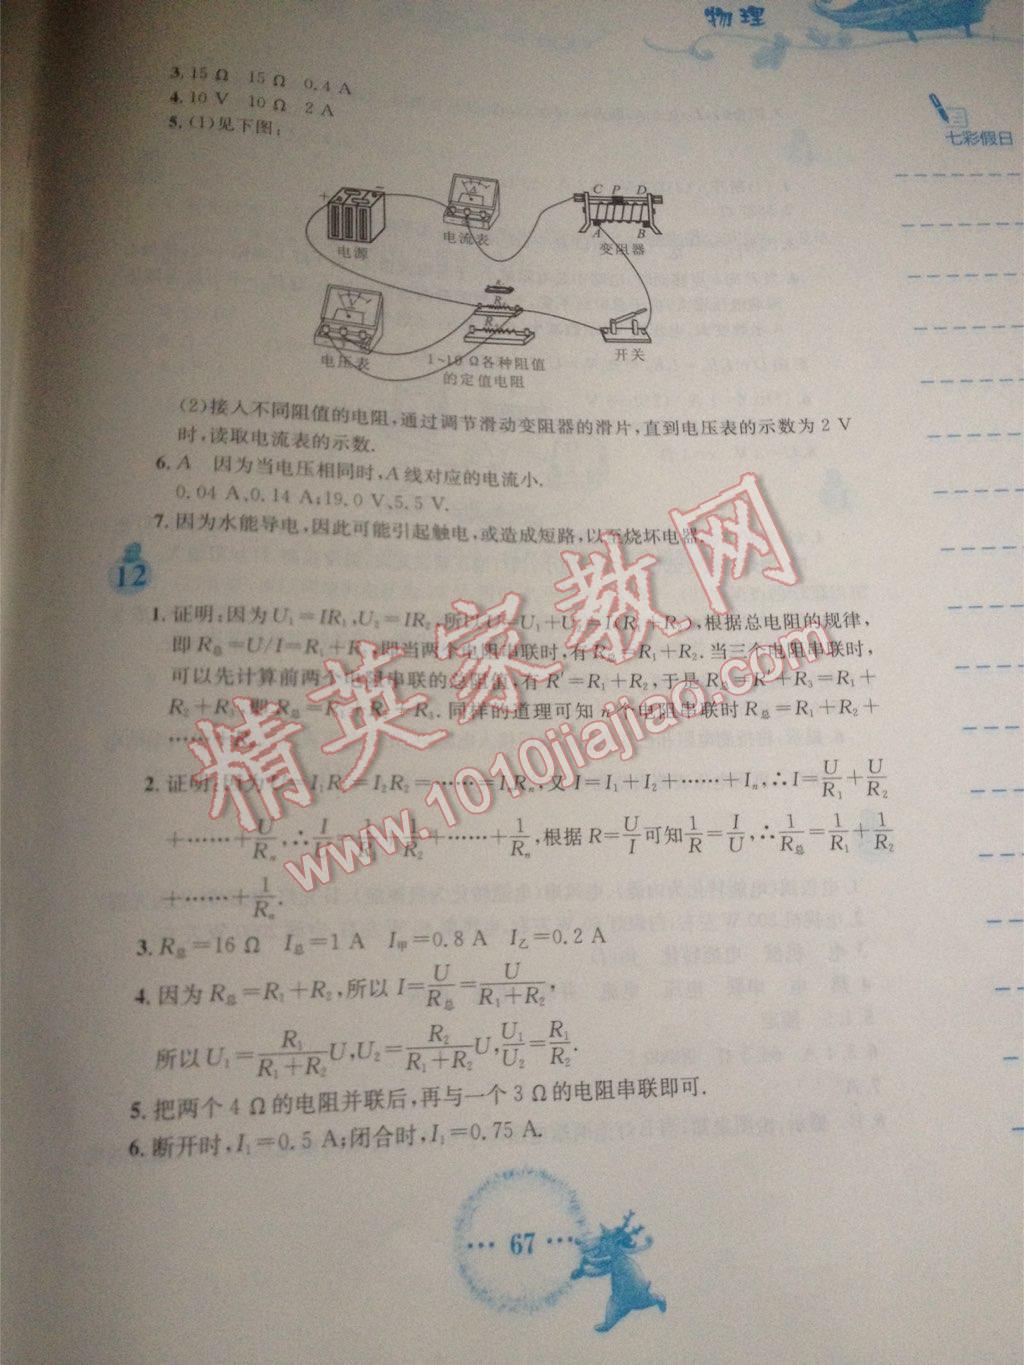 物理
七彩假日
3. 15 Ω　15 Ω　0.4 A
4. 10 V　10 Ω　2 A
5. (1)见下图:
+ −
电源
A
电流表
C P D
A B
变阻器
V
电压表
1~10 Ω各种阻值
的定值电阻
开关
(2)接入不同阻值的电阻,通过调节滑动变阻器的滑片,直到电压表的示数为 2 V
时,读取电流表的示数.
6. A　因为当电压相同时,A线对应的电流小.
0.04 A、0.14 A;19.0 V、5.5 V.
7. 因为水能导电,因此可能引起触电,或造成短路,以至烧坏电器.
12
1. 证明:因为U₁=IR₁,U₂=IR₂,所以U=U₁+U₂=I(R₁+R₂),根据总电阻的规律,
即R总=U/I=R₁+R₂,即当两个电阻串联时,有R总=R₁+R₂.当三个电阻串联时,
可以先计算前两个电阻串联的总阻值,有R′=R₁+R₂,于是R总=R′+R₃=R₁+
R₂+R₃,即R总=R₁+R₂+R₃.同样的道理可知n个电阻串联时R总=R₁+R₂+
……+
2. 证明:因为U=I₁R₁=I₂R₂=……=IₙRₙ,又I=I₁+I₂+……+Iₙ,∴I=U/R₁+U/R₂
+……+U/Rₙ,∴I/U=1/R₁+1/R₂+……+1/Rₙ,根据R=U/I可知1/R=I/U,∴1/R总=1/R₁+1/R₂
+……+1/Rₙ.
3. R总=16 Ω　I总=1 A　I甲=0.8 A　I乙=0.2 A
4. 因为R总=R₁+R₂,所以I=U/R总=U/(R₁+R₂),
所以U₁=R₁/(R₁+R₂)U,U₂=R₂/(R₁+R₂)U,U₁/U₂=R₁/R₂.
5. 把两个4 Ω的电阻并联后,再与一个3 Ω的电阻串联即可.
6. 断开时,I₁=0.5 A;闭合时,I₁=0.75 A.
精英家教网
www.1010jiajiao.com
··· 67 ···